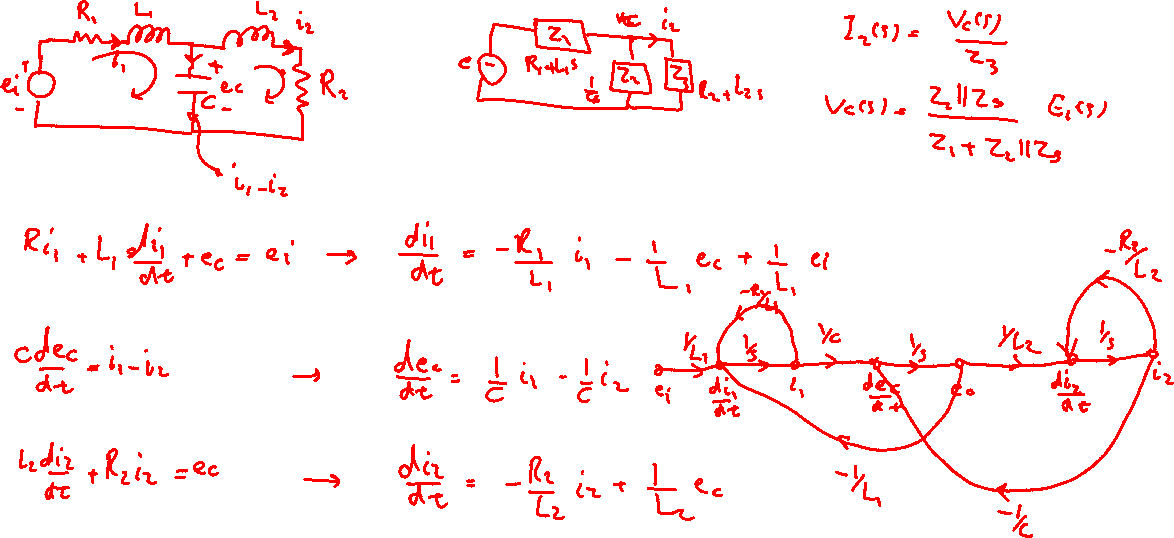 R₁ L₁ L₂ i₂
eᵢ + - i₁ + e_c C - R₂
i₁-i₂
e - Z₁ R₁+L₁s v_c i₂
Z₂ Z₃ R₂+L₂s
I₂(s) = V_c(s) / Z₃
V_c(s) = Z₂||Z₃ / (Z₁ + Z₂||Z₃) E₁(s)
Ri₁ + L₁ di₁/dt + e_c = eᵢ → di₁/dt = -R₁/L₁ i₁ - 1/L₁ e_c + 1/L₁ eᵢ
C de_c/dt = i₁-i₂ → de_c/dt = 1/C i₁ - 1/C i₂
L₂ di₂/dt + R₂i₂ = e_c → di₂/dt = -R₂/L₂ i₂ + 1/L₂ e_c
-R₁/L₁ -R₂/L₂
1/L₁ 1/s 1/C 1/s 1/L₂ 1/s
eᵢ di₁/dt i₁ de_c/dt e_c di₂/dt i₂
-1/L₁
-1/C